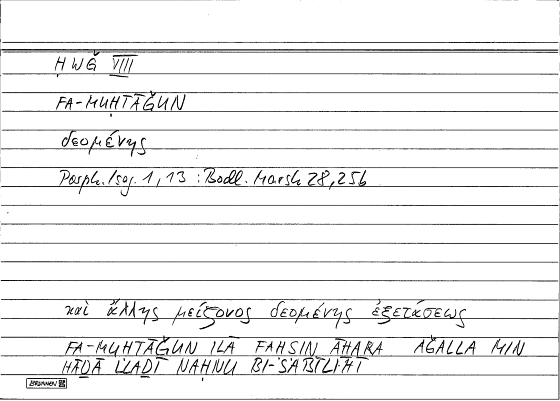 ḤWǦ VIII
FA-MUḤTĀǦUN
δεομένης
Porph. Isag. 1,13 : Bodl. Marsh 28,25b
καὶ ἄλλης μείζονος δεομένης ἐξετάσεως
FA-MUḤTĀǦUN ILĀ FAḤṢIN ĀḪARA AǦALLA MIN
HĀḎĀ LLAḎĪ NAḤNU BI-SABĪLIHĪ
BRUNNEN